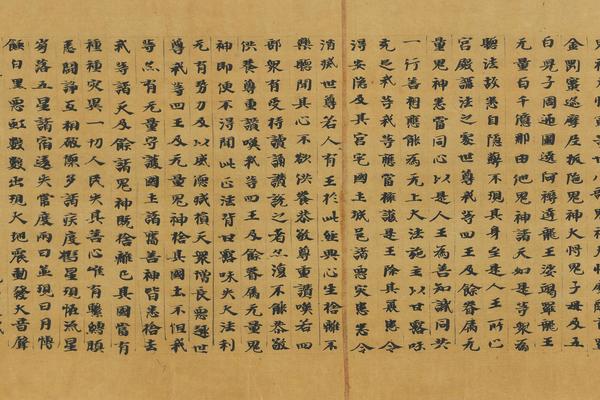 金剛蜜迹摩尼跋陀鬼神大將鬼子母及五
百兒子周迊圍遶阿耨達龍王娑竭羅龍王
无量百千億那由他鬼神諸天如是等眾為
聽法故悉自隱蔽不現其身至是人王所止
宮殿講法之處世尊我等四王及餘眷屬无
量鬼神悉當同心以是人王為善知識同共
一行善相應能為无上大法施主以甘露味
充足我等我等應當擁護是王除其衰患令
得安隱及其宮宅國土城邑諸惡災患悉令
消滅世尊若有人王於此經典心生捨離不
樂聽聞其心不欲供養恭敬尊重讚嘆若四
部眾有受持讀誦講說之者亦復不能恭敬
供養尊重讚嘆我等四王及餘眷屬无量鬼
神即便不得聞此正法背甘露味失大法利
无有勢力及以威德減損天眾增長惡趣世
尊我等四王及无量鬼神捨其國土不但我
等亦有无量守護國土諸舊善神皆悉捨去
我等諸天及餘諸鬼神既捨離已其國當有
種種災異一切人民失其善心唯有繫縛瞋
恚鬪諍互相破壞多諸疾疫彗星現怪流星
崩落五星諸宿違失常度兩日並現日月薄
蝕白黑惡虹數數出現大地震動發大音聲